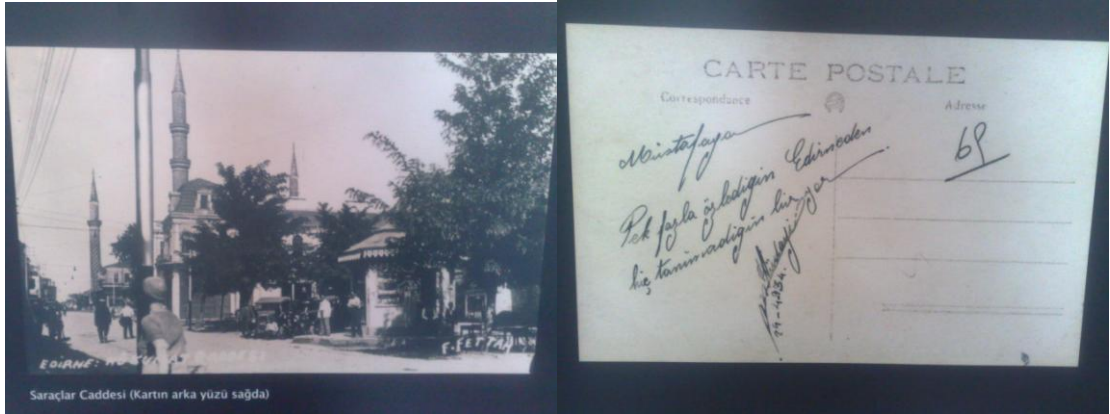 EDİRNE: HÜKÜMAT CADDESİ
F. FETTAH
Saraçlar Caddesi (Kartın arka yüzü sağda)
CARTE POSTALE
Correspondance
Adresse
Mustafaya
69
Pek fazla özlediğin Edirneden
hiç tanımadığın bir yer